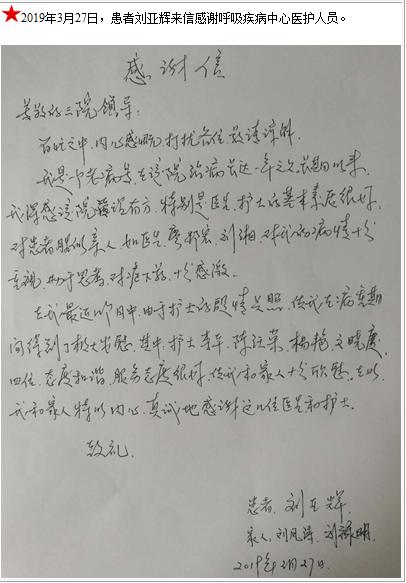 ★2019年3月27日，患者刘亚辉来信感谢呼吸疾病中心医护人员。
感谢信
尊敬的三院领导：
百忙之中，内心感慨，打扰各位敬请谅
我是一个老病号，在该院治病长达一年之久，长期以来，
我深感该院 有方，特别是医生、护士的基本素质很好，
对患者胜似亲人，如医生 、刘湘，对我的病情十分
重视，勤于思考，对症下药，十分感激。
在我最近 个月中，由于护士的热情关照，使我在病重期
间得到了极大安慰，其中，护士李军、陈 荣、杨艳、文晓庆
四位，态度和谐，服务态度很好，使我和家人十分欣慰，在此
我和家人特以内心，真诚地感谢这几位医生和护士。
致礼
患者 刘亚辉
家人 刘凤
2019年3月27日